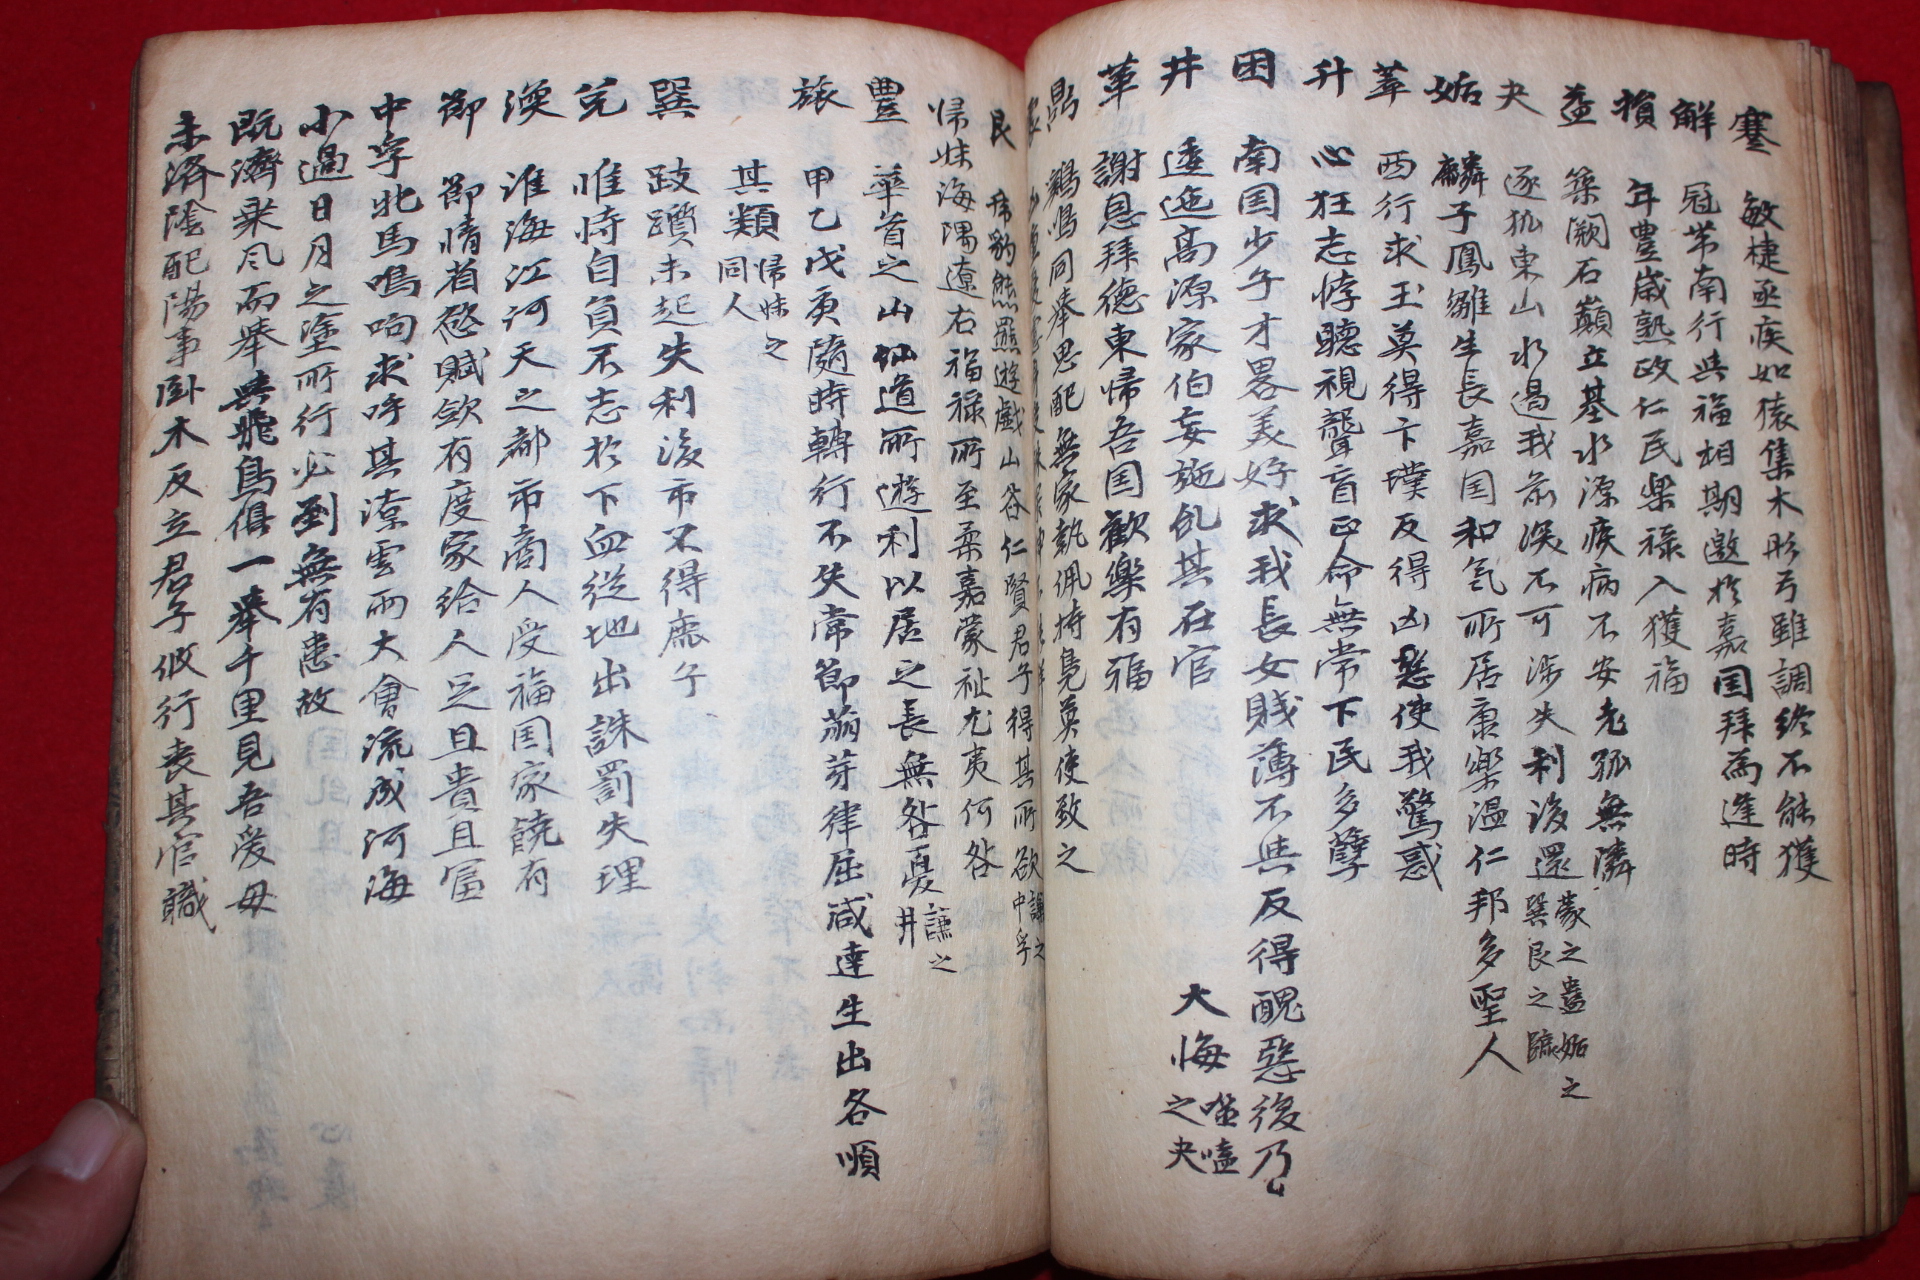 蹇 敏捷亟疾如猿集木彤弓雖調終不能獲
解 冠带南行與福相期邀於嘉国拜為逢時
損 年豊歳熟政仁民楽禄入獲福
益 築闕石巔立基水源疾病不安老孤無隣
夬 逐狐東山水遏我前深不可涉失利後還 蒙之蠱姤之 巽艮之臨
姤 麟子鳳雛生長嘉国和氣所居康樂温仁邦多聖人
萃 西行求玉莫得卞璞反得凶惡使我驚惑
升 心狂志悖聽視聾盲正命無常下民多孽
困 南国少子才畧美好求我長女賎薄不與反得醜惡後乃
大悔 噬嗑之夬
井 逶迤高源家伯妄施乱其在官
革 謝恩拜德東帰吾国歓樂有福
鼎 鵴鳴同舉思配無家執佩持鳧莫使致之
艮 豹熊羆遊戯山谷仁賢君子得其所欲 謙之中孚
帰妹 海隅遼右福禄所至柔嘉蒙祉尤夷何咎
豊 華首之山仙道所遊利以居之長無咎憂 謙之井
旅 甲乙戊庚隨時轉行不失常節萠芽律屈咸達生出各順
其類 帰妹之同人
巽 跂躓未起失利後市不得鹿子
兌 惟恃自負不志於下血従地出誅罰失理
渙 淮海江河天之都市商人受福国家饒有
節 節情省慾賦歛有度家給人足且貴且冨
中孚 北馬鳴呴求呼其潦雲雨大會流成河海
小過 日月之塗所行必到無有患故
既濟 乗風而舉與飛鳥俱一舉千里見吾愛母
未済 陰配陽争卧木反立君子攸行喪其官職